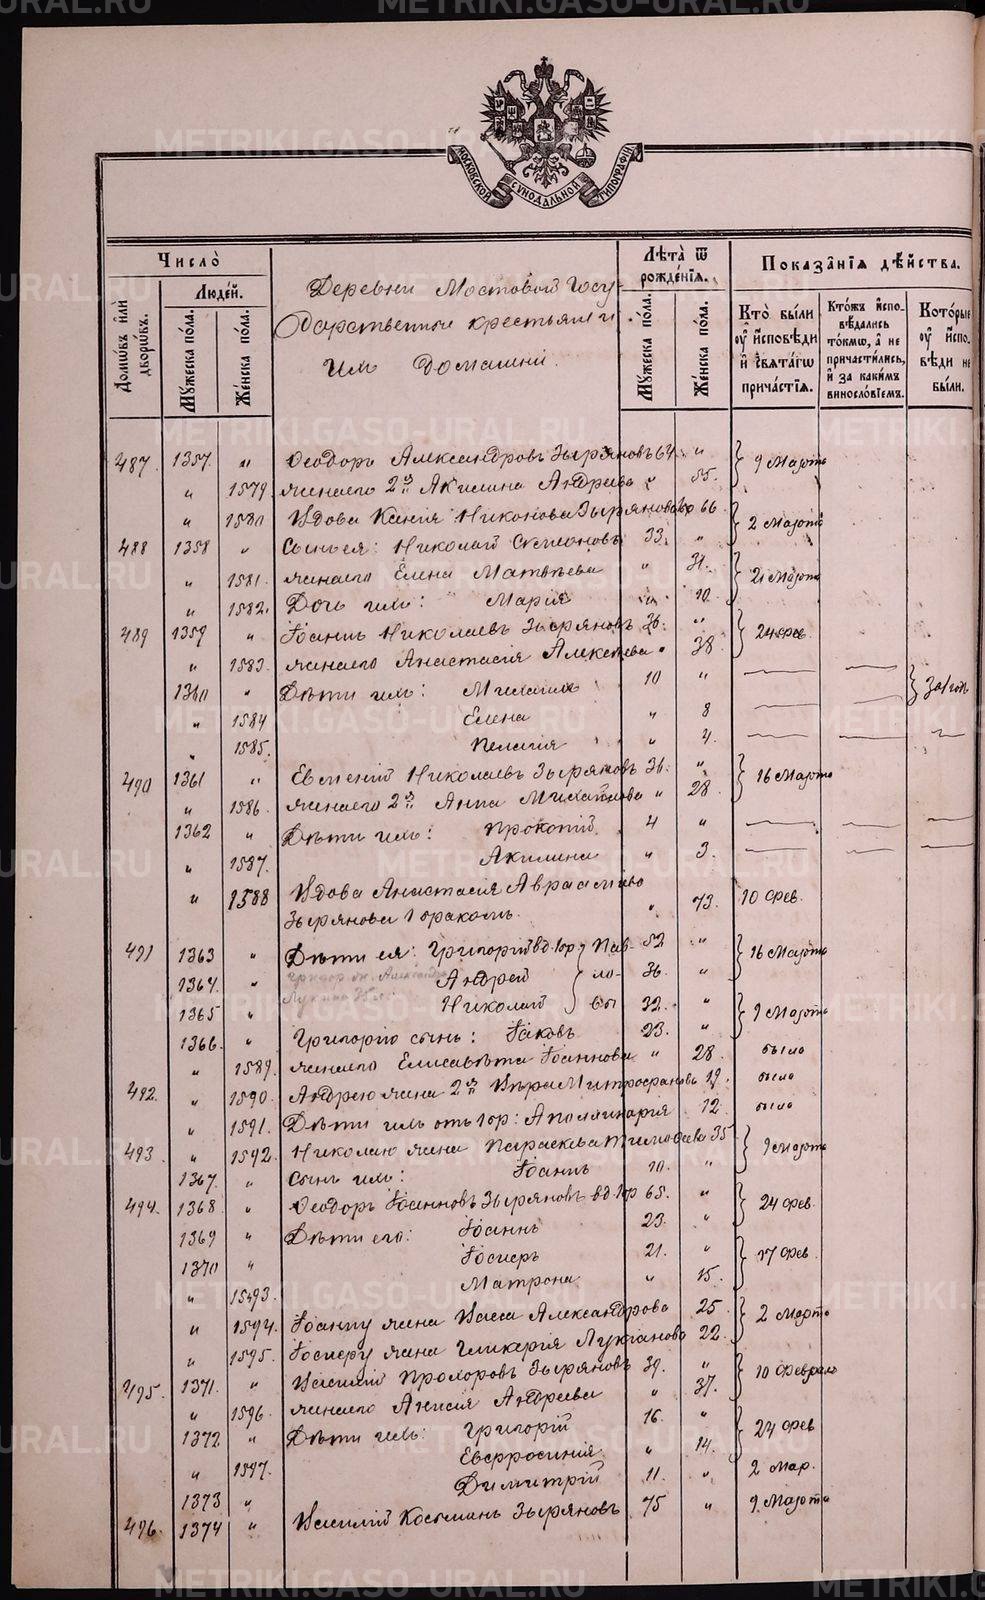 METRIKI.GASO-URAL.RU
МОСКОВСКОЙ СѴНОДАЛЬНОЙ ТИПОГРАФІИ
Число̀
Домѡ́въ и҆̀ли дворѡ́въ.
Люде́й.
Мꙋ́жеска по́ла.
Же́нска по́ла.
Деревни Мостовой Госу-
дарственнои крестьяне и
ихъ домашни.
Лѣта̀ ѿ рожде́нїѧ.
Мꙋ́жеска по́ла.
Же́нска по́ла.
Показа̑нїѧ дѣ́йства.
Кто̀ бы́ли ᲂу҆ и҆́сповѣди и҆ свѧта́гѡ прича́стїѧ.
Кто́жъ и҆спо-вѣ́дались то́кмѡ, а҆ не причасти́лись, и҆ за каки́мъ винослóвїемъ.
Кото́рые ᲂу҆ и҆спо-вѣди не бы́ли.
487. 1357. " Ѳеодоръ Александровъ Зыряновъ 64. " 9 Марта
" 1579. жена его 2я Акилина Андреева " 55.
" 1580 Вдова Ксенія Никонова Зырянова 66 2 Марта
488 1358 " Сынъ ея: Николай Симеоновъ 33. "
" 1581. жена его Елена Матвѣева " 31. 21 Марта
" 1582. Дочь ихъ: Марія " 10.
489 1359 " Іоаннъ Николаевъ Зыряновъ 36. " 24 Фев.
" 1583. жена его Анастасія Алексѣева " 38
1360 " Дѣти ихъ: Михаилъ 10 "
" 1584 Елена " 8
" 1585. Пелагія " 4.
490 1361 " Евгеній Николаевъ Зыряновъ 36. " 16 Марта
" 1586. жена его 2я Анна Михайлова " 28
1362 " Дѣти ихъ: Прокопій 4 "
" 1587. Акилина " 3.
" 1588 Вдова Анастасія Авраамова
Зырянова 1 бракомъ. " 73. 10 Фев.
491 1363 " Дѣти ея: Григорій вд. 1 бр Пав- 52 " 16 Марта
1364. " Андрей ло- 36. "
1365 " Николай вы 32. " 9 Марта
1366. " Григорію сынъ: Іаковъ 23. "
" 1589. жена его Елисавета Іоаннова " 28. было
492. " 1590. Андрею жена 2я Вѣра Митрофанова 19. было
" 1591. Дѣти ихъ отъ 1 бр: Аполинарія 12. было
493. " 1592. Николаю жена Параскева Тимофеева 35 9 Марта
1367. " Сынъ ихъ: Іоаннъ 10. "
494. 1368. " Ѳеодоръ Іоанновъ Зыряновъ вд. 1 бр 65. " 24 Фев.
1369 " Дѣти его: Іоаннъ 23. "
1370 " Іосифъ 21. " 17 Фев.
" 1593. Матрона " 15.
" 1594. Іоанну жена Васса Александрова 25. 2 Марта
" 1595. Іосифу жена Гликерія Лукіанова 22.
495. 1371. " Василій Прохоровъ Зыряновъ 39. " 10 Февраля
" 1596. жена его Анисія Андреева " 37.
1372 " Дѣти ихъ: Григорій 16. " 24 Фев
" 1597. Евфросинія " 14.
1373 " Димитрій 11. " 2 Мар.
496. 1374 " Василій Косьминъ Зыряновъ 75 " 9 Марта